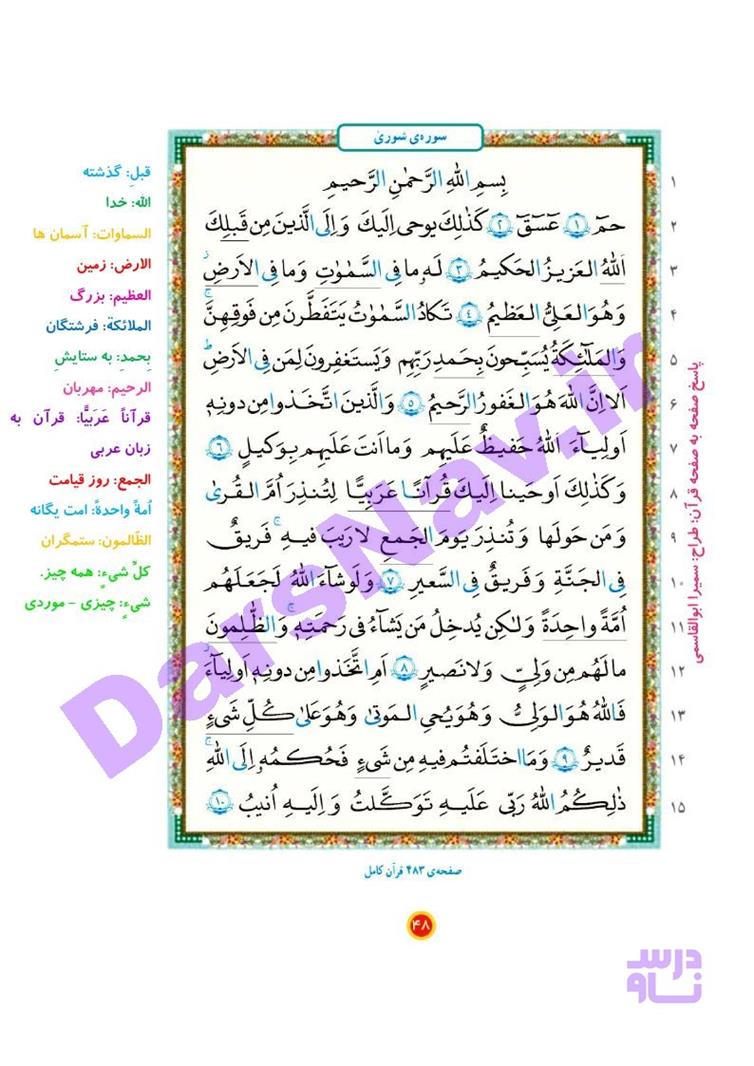 سوره‌ی شوری
بِسمِ اللّٰهِ الرَّحمٰنِ الرَّحیمِ
حمٓ ﴿١﴾ عٓسٓقٓ ﴿٢﴾ کَذٰلِکَ یوحی اِلَیکَ وَ اِلَی الَّذینَ مِن قَبلِکَ
اللّٰهُ العَزیزُ الحَکیمُ ﴿٣﴾ لَهٗ ما فِی السَّمٰوٰتِ وَ ما فِی الاَرضِ
وَ هُوَ العَلِیُّ العَظیمُ ﴿٤﴾ تَکادُ السَّمٰوٰتُ یَتَفَطَّرنَ مِن فَوقِهِنَّ
وَالمَلٰئِکَةُ یُسَبِّحونَ بِحَمدِ رَبِّهِم وَ یَستَغفِرونَ لِمَن فِی الاَرضِ
اَلا اِنَّ اللّٰهَ هُوَ الغَفورُ الرَّحیمُ ﴿٥﴾ وَالَّذینَ اتَّخَذوا مِن دونِهٖ
اَولِیاءَ اللّٰهُ حَفیظٌ عَلَیهِم وَ ما اَنتَ عَلَیهِم بِوَکیلٍ ﴿٦﴾
وَ کَذٰلِکَ اَوحَینا اِلَیکَ قُرآنًا عَرَبِیًّا لِتُنذِرَ اُمَّ القُریٰ
وَ مَن حَولَها وَ تُنذِرَ یَومَ الجَمعِ لا رَیبَ فیهِ فَریقٌ
فِی الجَنَّةِ وَ فَریقٌ فِی السَّعیرِ ﴿٧﴾ وَ لَو شاءَ اللّٰهُ لَجَعَلَهُم
اُمَّةً واحِدَةً وَ لٰکِن یُدخِلُ مَن یَشاءُ فی رَحمَتِهٖ وَ الظّٰلِمونَ
ما لَهُم مِن وَلِیٍّ وَ لا نَصیرٍ ﴿٨﴾ اَمِ اتَّخَذوا مِن دونِهٖ اَولِیاءَ
فَاللّٰهُ هُوَ الوَلِیُّ وَ هُوَ یُحیِ المَوتیٰ وَ هُوَ عَلیٰ کُلِّ شَیءٍ
قَدیرٌ ﴿٩﴾ وَ مَا اختَلَفتُم فیهِ مِن شَیءٍ فَحُکمُهٗ اِلَی اللّٰهِ
ذٰلِکُمُ اللّٰهُ رَبّی عَلَیهِ تَوَکَّلتُ وَ اِلَیهِ اُنیبُ ﴿١٠﴾
۱
۲
۳
۴
۵
۶
۷
۸
۹
۱۰
۱۱
۱۲
۱۳
۱۴
۱۵
پاسخ صفحه به صفحه قرآن: طراح: سمیرا ابوالقاسمی
قبلِ: گذشته
الله: خدا
السماوات: آسمان ها
الارض: زمین
العظیم: بزرگ
الملائکة: فرشتگان
بِحمدِ: به ستایشِ
الرحیم: مهربان
قرآناً عَرَبیًّا: قرآن به
زبان عربی
الجمع: روز قیامت
اُمةً واحدةً: امت یگانه
الظّالمون: ستمگران
کلِّ شیءٍ: همه چیز.
شیءٍ: چیزی - موردی
صفحه‌ی ۴۸۳ قرآن کامل
۴۸
DarsNav.ir
درس
ناو